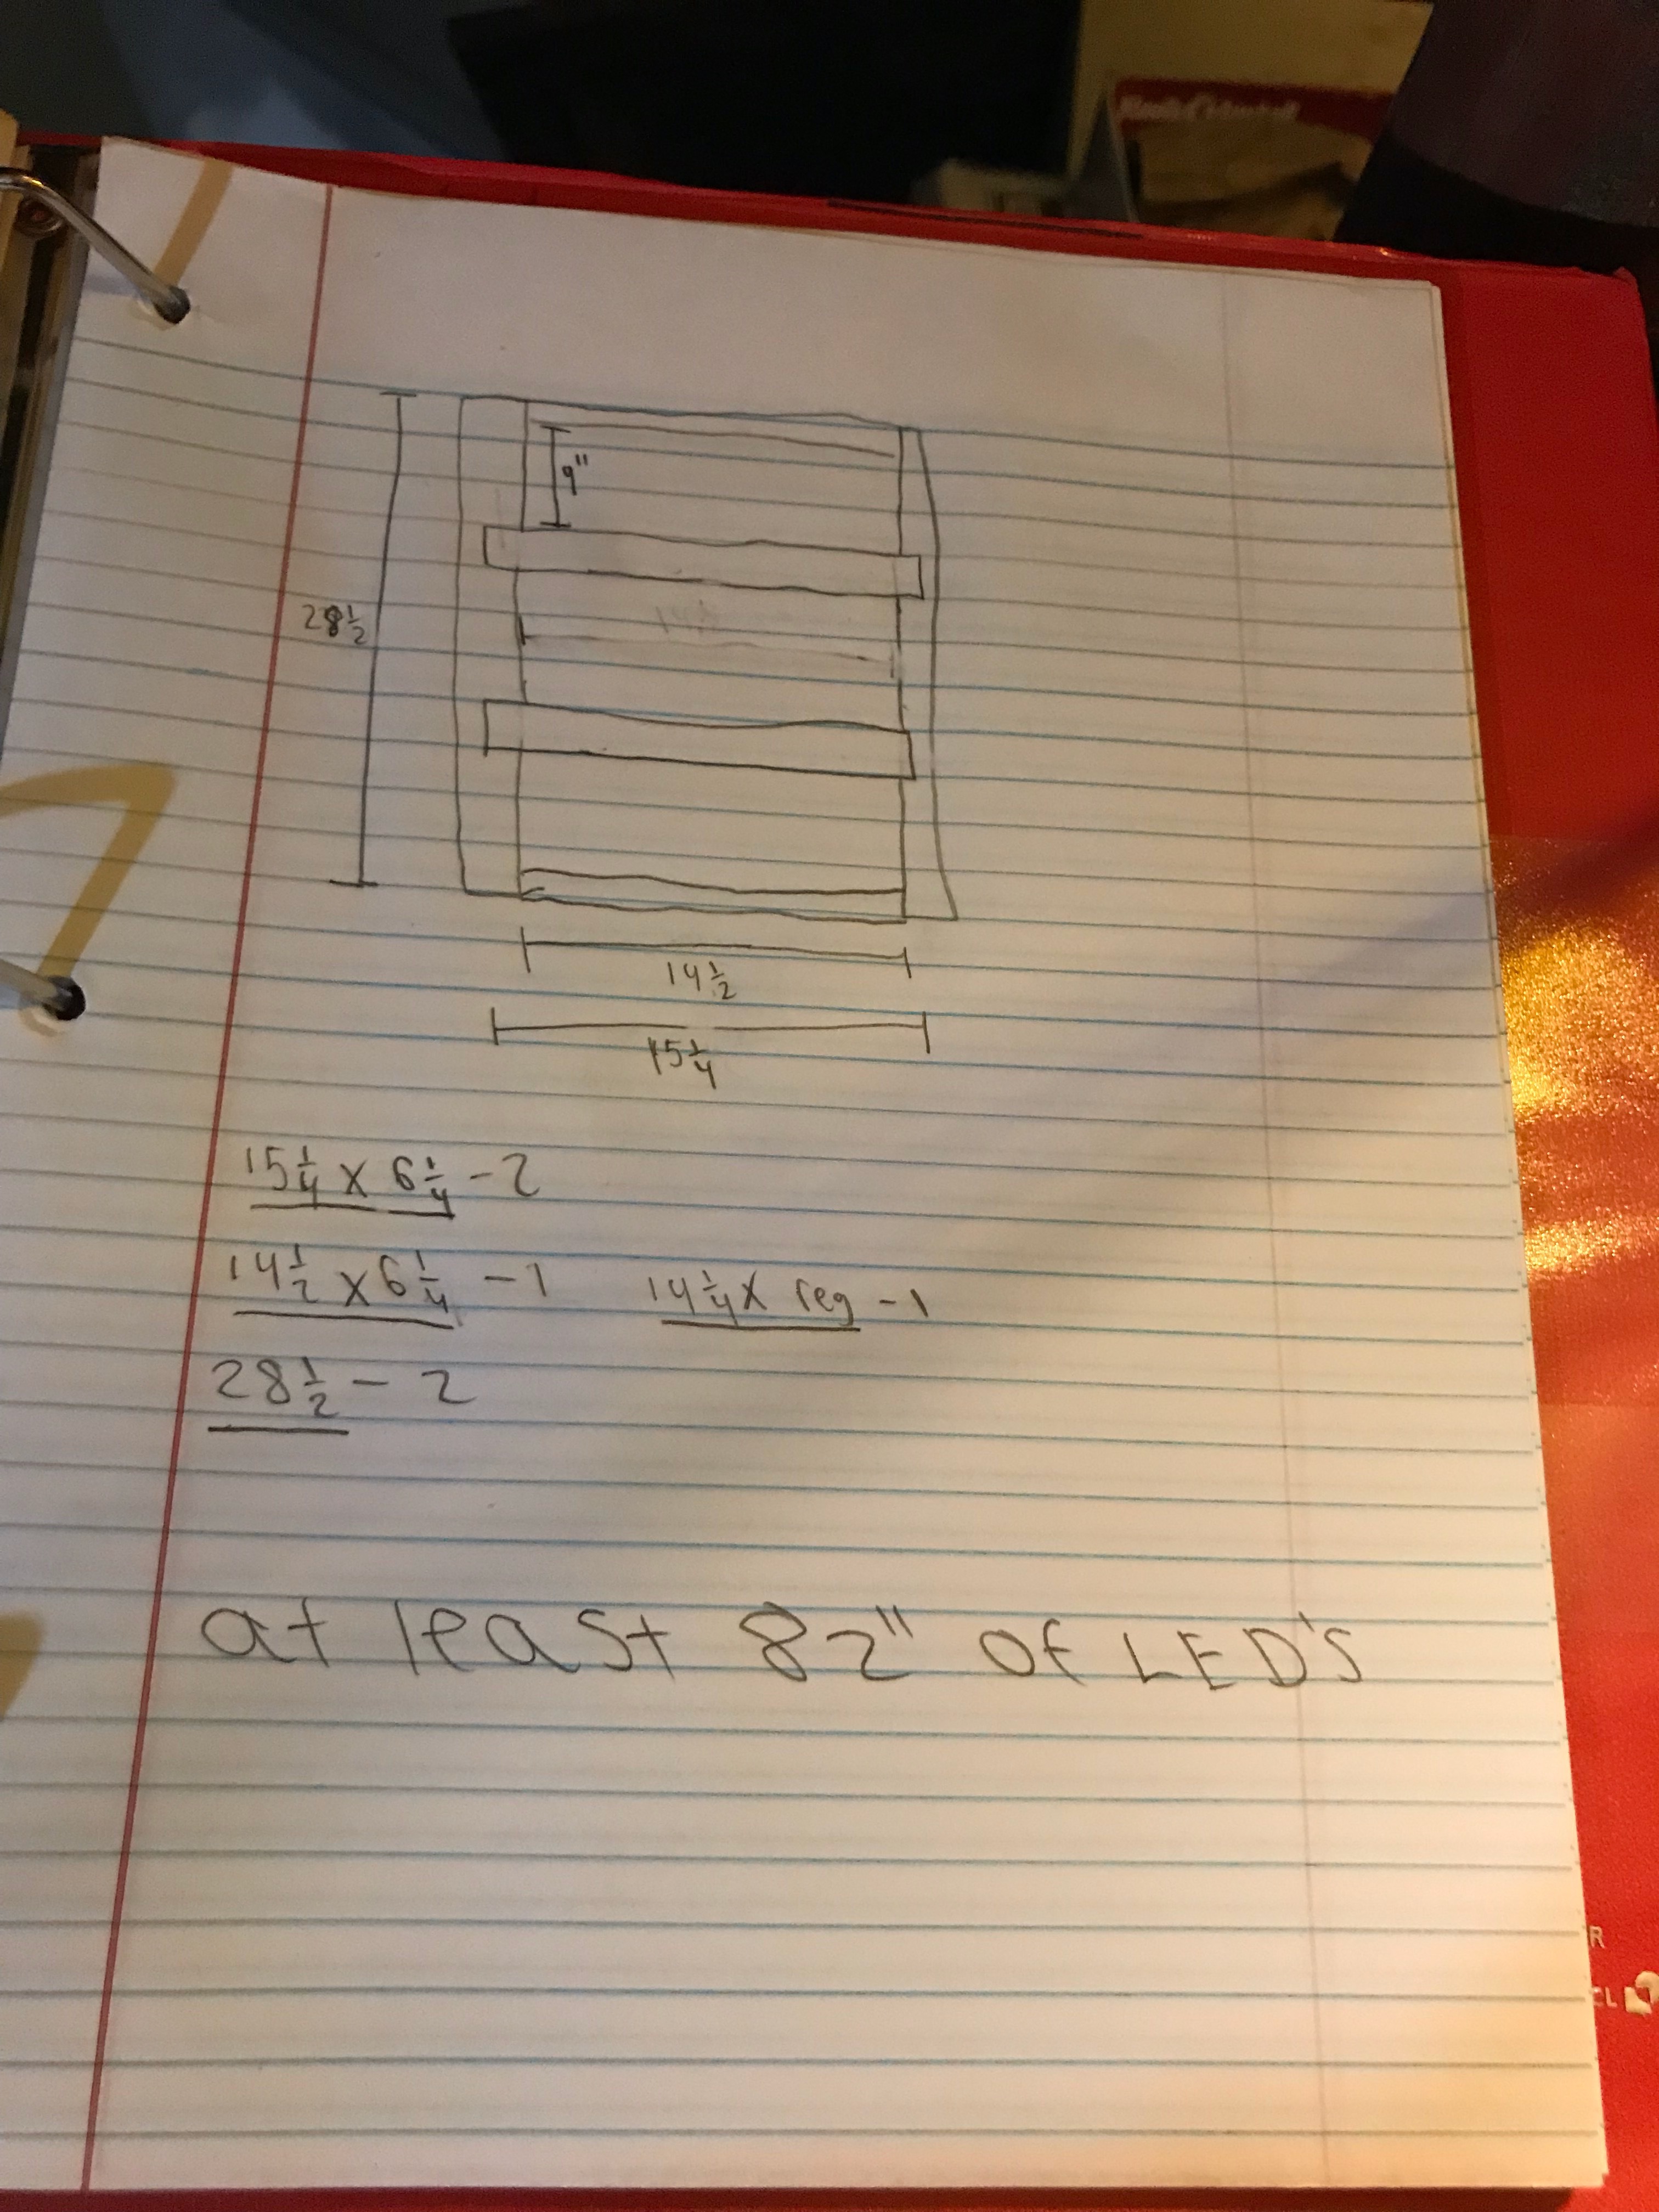 9"
28½
14½
15¼
15¼ x 6¼ - 2
14½ x 6¼ - 1 14¼ x reg - 1
28½ - 2
at least 82" of LED'S
R